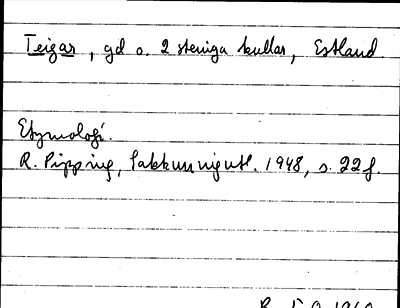 Teigar, gd o. 2 steniga kullar, Estland
Etymologi.
R. Pipping, 1948, s. 22 f.